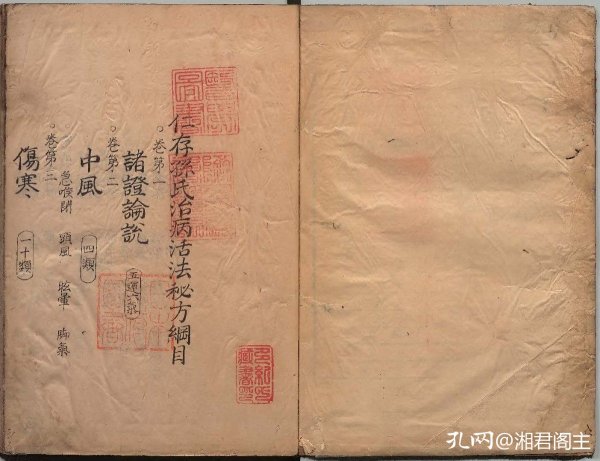 仁存孫氏治病活法祕方綱目
卷第一
諸證論說 五運六氣
卷第二
中風 四類
急喉閉 頭風 眩暈 脚氣
卷第三
傷寒 一十類
孔网@湘君阁主